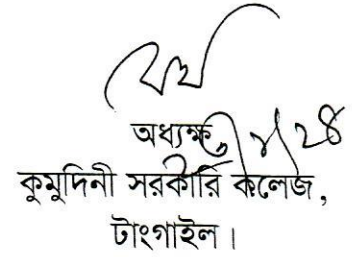 অধ্যক্ষ
কুমুদিনী সরকারি কলেজ,
টাংগাইল।